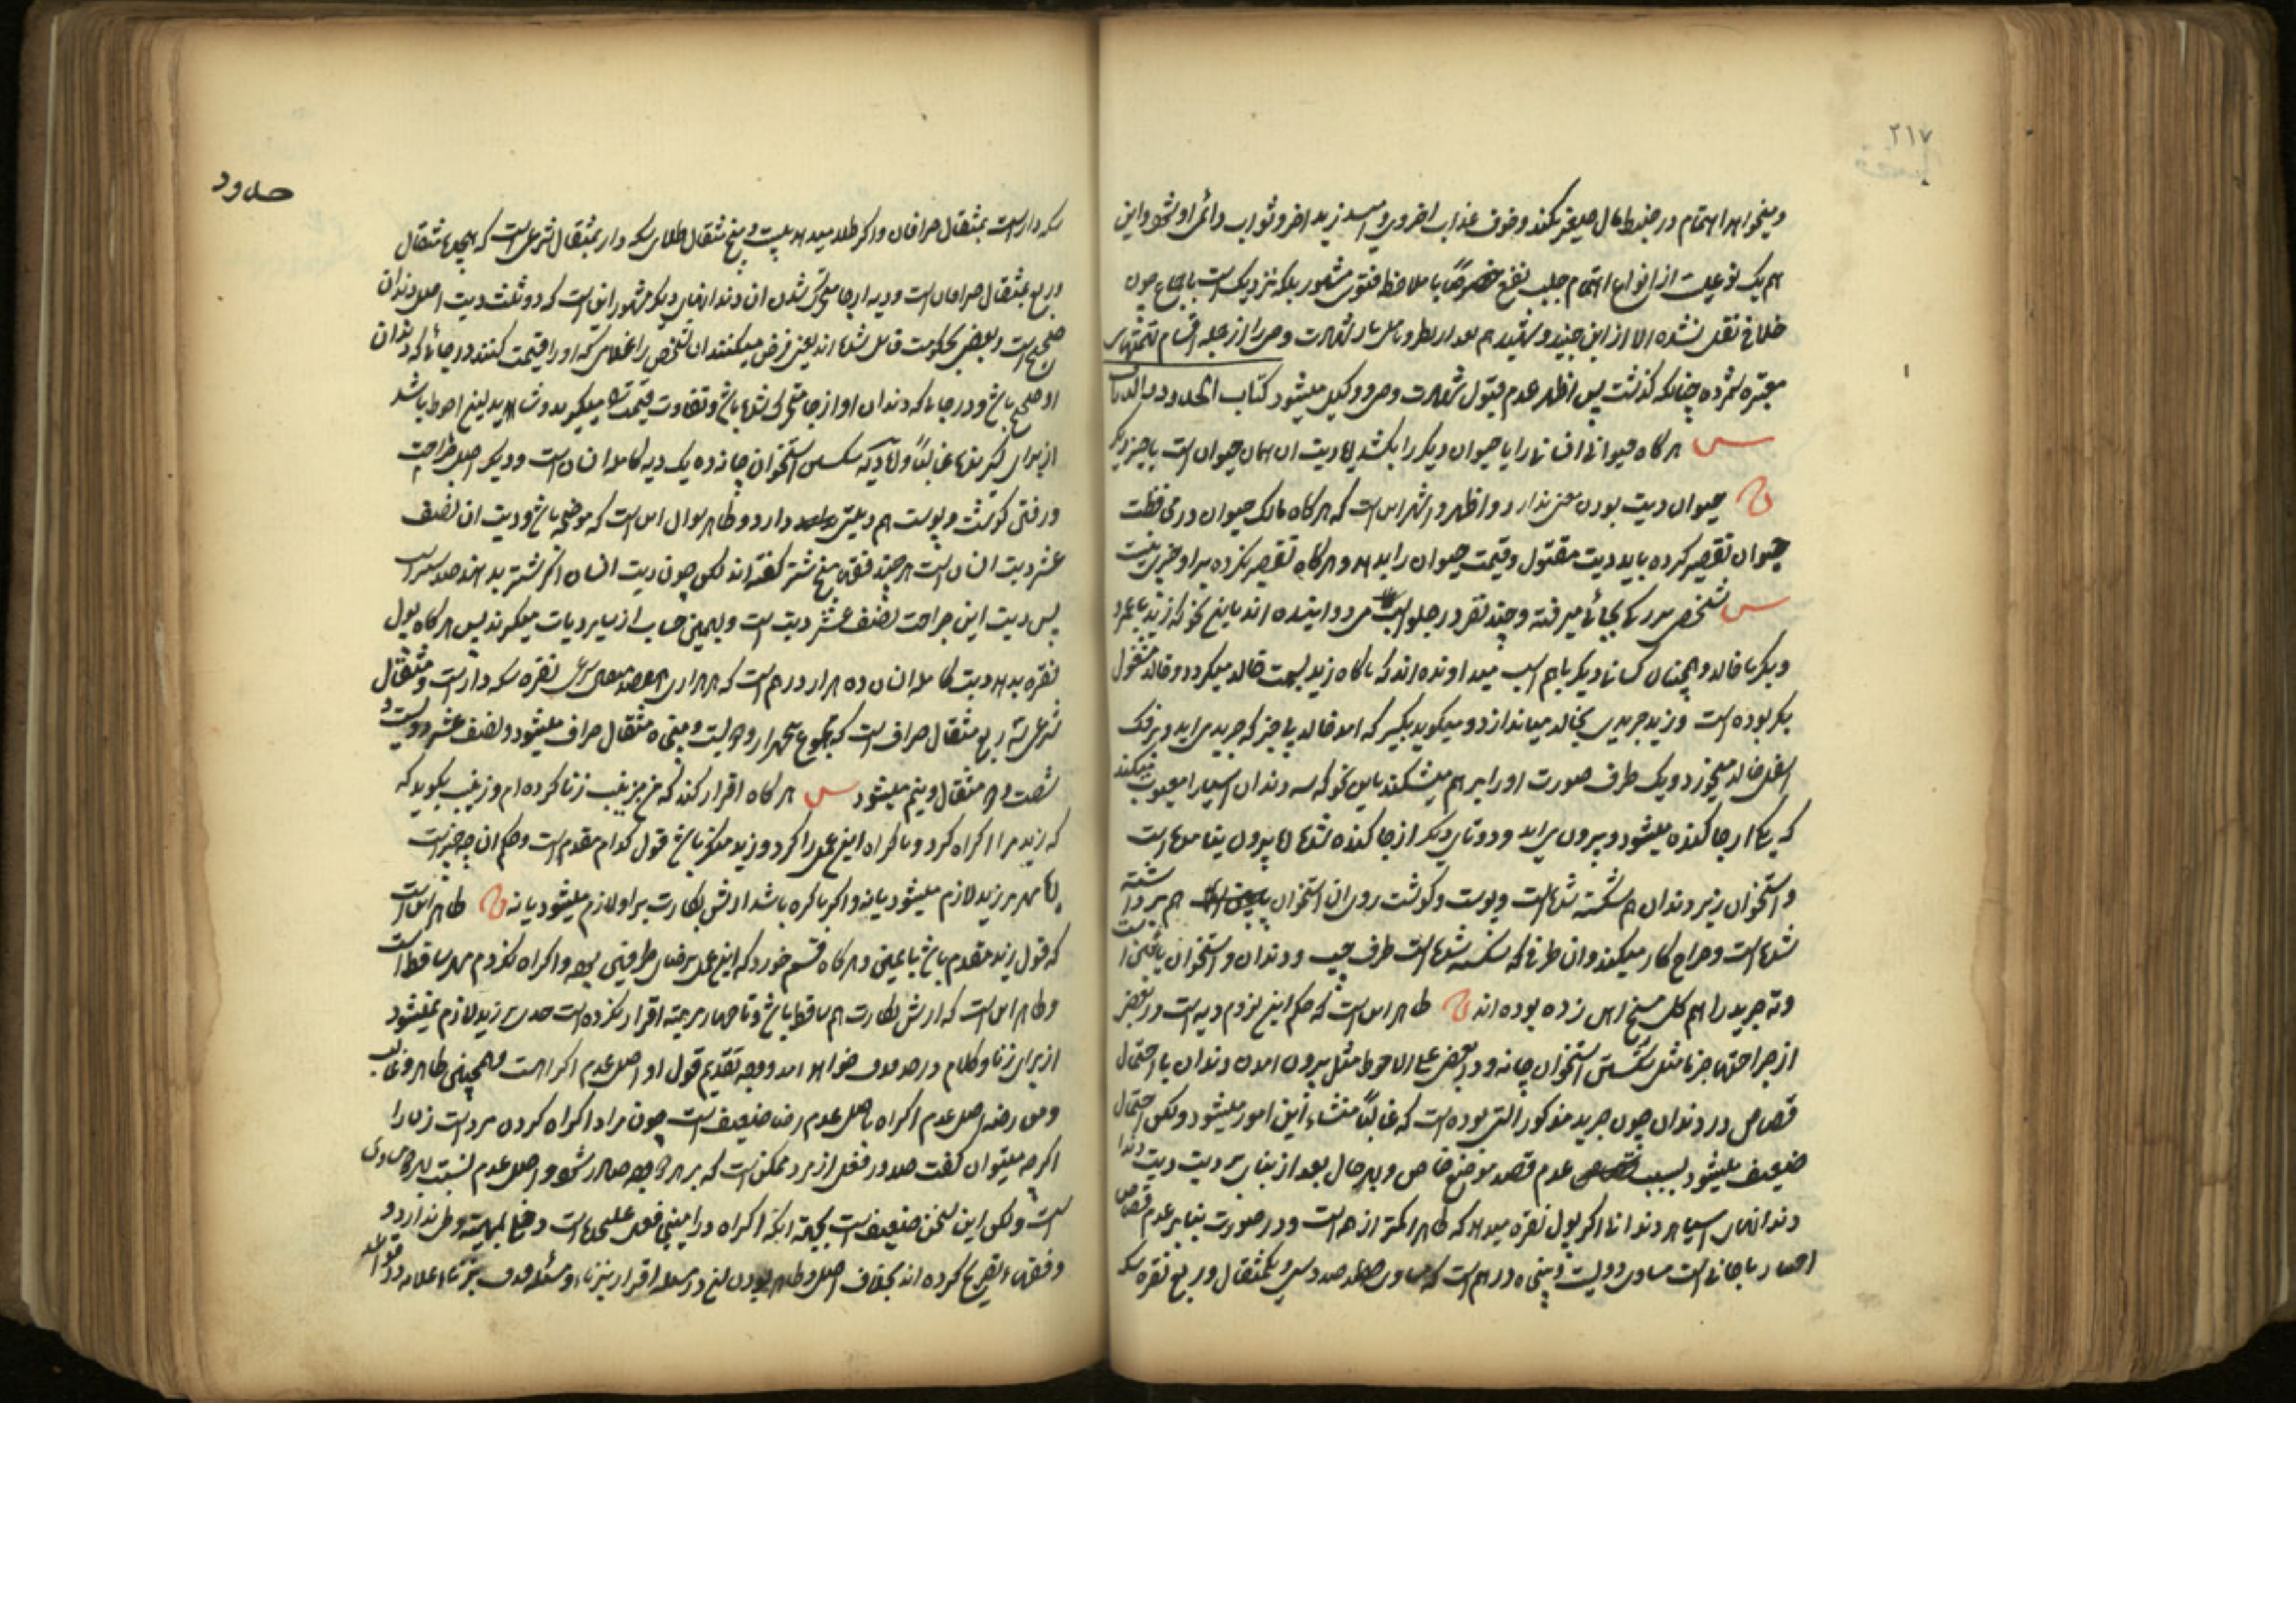 ۲۱۷
و میخواهد اهتمام در ضبط مال صغیر بکند و خوف عذاب اخروی و امید مزید اجر و ثواب دائمی او شود و این
هم یک نوعیست از انواع اهتمام جلب نفع خصوصاً با ملاحظه فتوی مشهور بلکه نزدیکست باجماع چون
خلافی نقل نشده الا از ابن جنید و شهید هم بعد از شهادت وصی را از جمله اقسام تهمتهای
معتبره شمرده چنانکه گذشت پس اظهر عدم قبول شهادت وصی و وکیل میشود کتاب الحدود و الدیات
س هر گاه حیوانی انسانی را یا حیوان دیگر را بکشد ایا دیت ان همان حیوان است یا چیز دیگر
ج حیوان دیت بودن معنی ندارد و اظهر و اشهر این است که هر گاه مالک حیوان در محافظت
حیوان تقصیر کرده باید دیت مقتول و قیمت حیوان را بدهد و هر گاه تقصیر نکرده بر او چیزی نیست
س شخصی سواره بجائی میرفته و چند نفر در جلو اسب می دوانیده اند باین نحو که زید با عمرو
و بکر با خالد و همچنان کسان دیگر با هم اسب میدوانده اند که ناگاه زید بسمت خالد میگردد و خالد مشغول
بکر بوده است و زید جریدی بخالد میاندازد و میگوید بگیر که امد خالد تا خبر که جرید می اید و بر فک
اسفل خالد میخورد و یک طرف صورت او را بر هم میشکند باین نحو که سه دندان اسیا را معیوب میکند
که یکی از جا کنده میشود و بیرون می اید و دو تای دیگر از جا کنده شده اما بیرون نیامده است
و استخوان زیر دندان هم شکسته شده است و پوست و گوشت روی ان استخوان هم برداشته
شده است و جراح کار میکند و ان طرفی که شکسته شده است طرف چپ و دندان و استخوان پائین است
و ته جرید را هم گل میخ اهن زده بوده اند ج ظاهر این است که حکم این لزوم دیه است در بعضی
از جراحتها جزما مثل شکستن استخوان چانه و در بعضی علی الاحوط مثل بیرون امدن دندان با احتمال
قصاص در دندان چون جرید مذکور التی بوده است که غالباً منشاء این امور میشود و لکن احتمال
ضعیف میشود بسبب عدم قصد موضع خاص و بهر حال بعد از بنا بر دیت دیت دندان
دندانهای اسیا هر دندانی اگر پول نقره میدهد که ظاهرا کمتر از همه است و در صورت بنا بر عدم قصاص
اختیار با جانی است مساوی دویست و پنجاه درهم است که مساوی صد و سی و یکمثقال و ربع نقره سکه
حدود
سکه دار است بمثقال صرافان و اگر طلا میدهد بیست و پنج مثقال طلای سکه دار بمثقال شرعی است که هیجده مثقال
و ربع بمثقال صرافان است و دیه از جا متحرک شدن ان دندانهای دیگر مشهور این است که دو ثلث دیت اصل دندان
صحیح است و بعضی بحکومت قائل شده اند یعنی فرض میکنند ان شخص را غلامی که او را قیمت کنند در جائی که دندان
او صحیح باشد و در جائی که دندان او از جا متحرک شده باشد و تفاوت قیمت را میگیرند و شاید این احوط باشد
از برای گیرنده غالباً و اما دیه شکستن استخوان چانه ده یک دیه کامله انسان است و دیگر اصل جراحت
و رفتن گوشت و پوست هم دیتی دارد و ظاهر سوال این است که موضحه باشد و دیت ان نصف
عشر دیت انسان است هر چند فقها پنج شتر گفته اند لکن چون دیت انسان اگر شتر بدهند صد شتر است
پس دیت این جراحت نصف عشر دیت است و بهمین حساب از سایر دیات میگیرند پس هر گاه پول
نقره بدهد دیت کامله انسان ده هزار درهم است که هر هزاری هفصد مثقال شرعی نقره سکه دار است و مثقال
شرعی سه ربع مثقال صراف است که مجموع پنجهزار و دویست و پنجاه مثقال صراف میشود و نصف عشر دویست و
شصت و دو مثقال و نیم میشود س هر گاه اقرار کند که من بزینب زنا کرده ام و زینب بگوید که
که زید مرا اکراه کرد و باکراه این عمل را کرد و زید منکر باشد قول کدام مقدم است و حکم ان چه چیز است
ایا مهر بر زید لازم میشود یا نه و اگر باکره باشد ارش بکارت بر او لازم میشود یا نه ج ظاهر این است
که قول زید مقدم باشد با یمین و هر گاه قسم خورد که این عمل برضای طرفین بوده و اکراه نکردم مهر ساقط است
و ظاهر این است که ارش بکارت هم ساقط باشد و تا چهار مرتبه اقرار نکرده است حدی بر زید لازم نمیشود
از برای زنا و کلام در حد قذف خواهد امد و وجه تقدیم قول او اصل عدم اکراه است و همچنین ظاهر و غالب
و معارضه اصل عدم اکراه با اصل عدم رضا ضعیف است چون مراد اکراه کردن مرد است زن را
اگر چه میتوان گفت صدور فعل از مرد ممکن است که بر هر دو وجه صادر شود و اصل عدم نسبت بهر دو مساوی
است و لکن این سخن ضعیف است بجهة اینکه اکراه در این معنی فعل علیحده است و رضا بماهیته وطی ندارد و
و فقهاء تصریح کرده اند بخلاف اصل و ظاهر بودن ان در مسئله اقرار بزنا و مسئله قذف بزنا علامه در قواعد